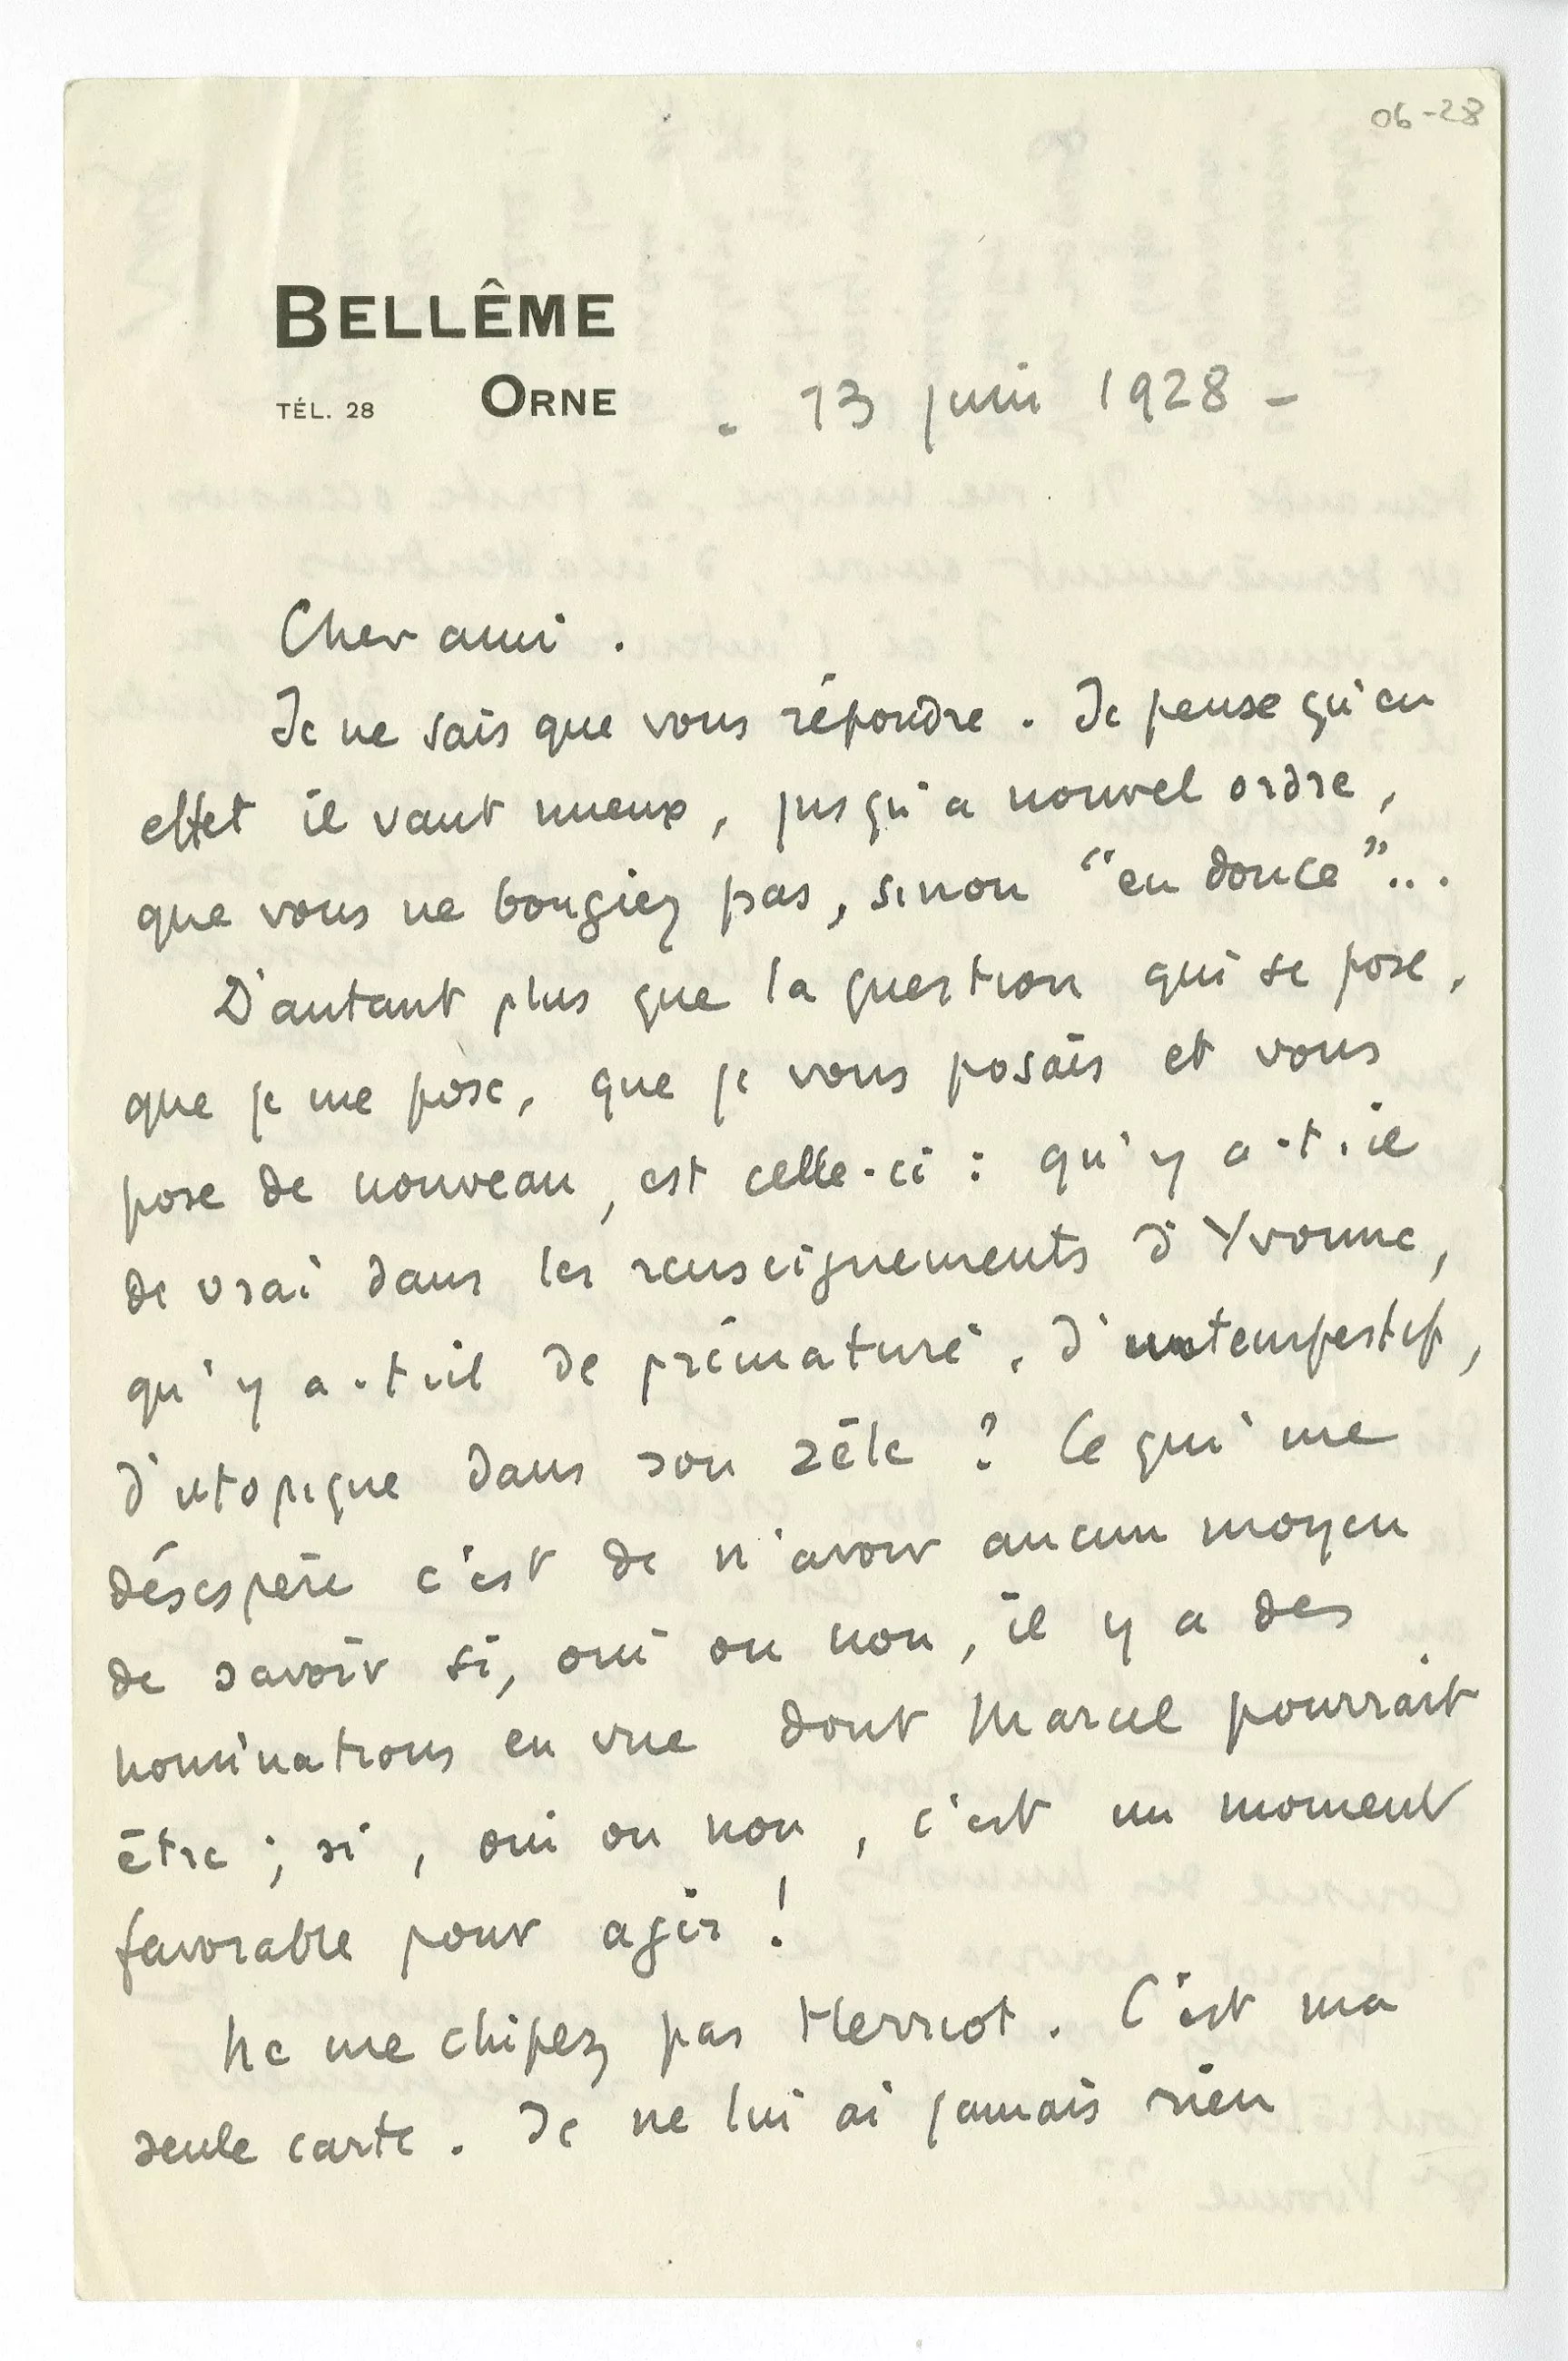 06-28
BELLÊME
TÉL. 28 ORNE
- 13 juin 1928 -
Cher ami.
Je ne sais que vous répondre. Je pense qu'en
effet il vaut mieux, jusqu'a nouvel ordre,
que vous ne bougiez pas, sinon "en douce"...
D'autant plus que la question qui se pose,
que je me pose, que je vous posais et vous
pose de nouveau, est celle-ci : qu'y a-t-il
de vrai dans les renseignements d'Yvonne,
qu'y a-t-il de prématuré, d'intempestif,
d'utopique dans son zèle ? Ce qui me
désespère c'est de n'avoir aucun moyen
de savoir si, oui ou non, il y a des
nominations en vue dont Marcel pourrait
être ; si, oui ou non, c'est un moment
favorable pour agir !
Ne me chipez pas Herriot. C'est ma
seule carte. Je ne lui ai jamais rien